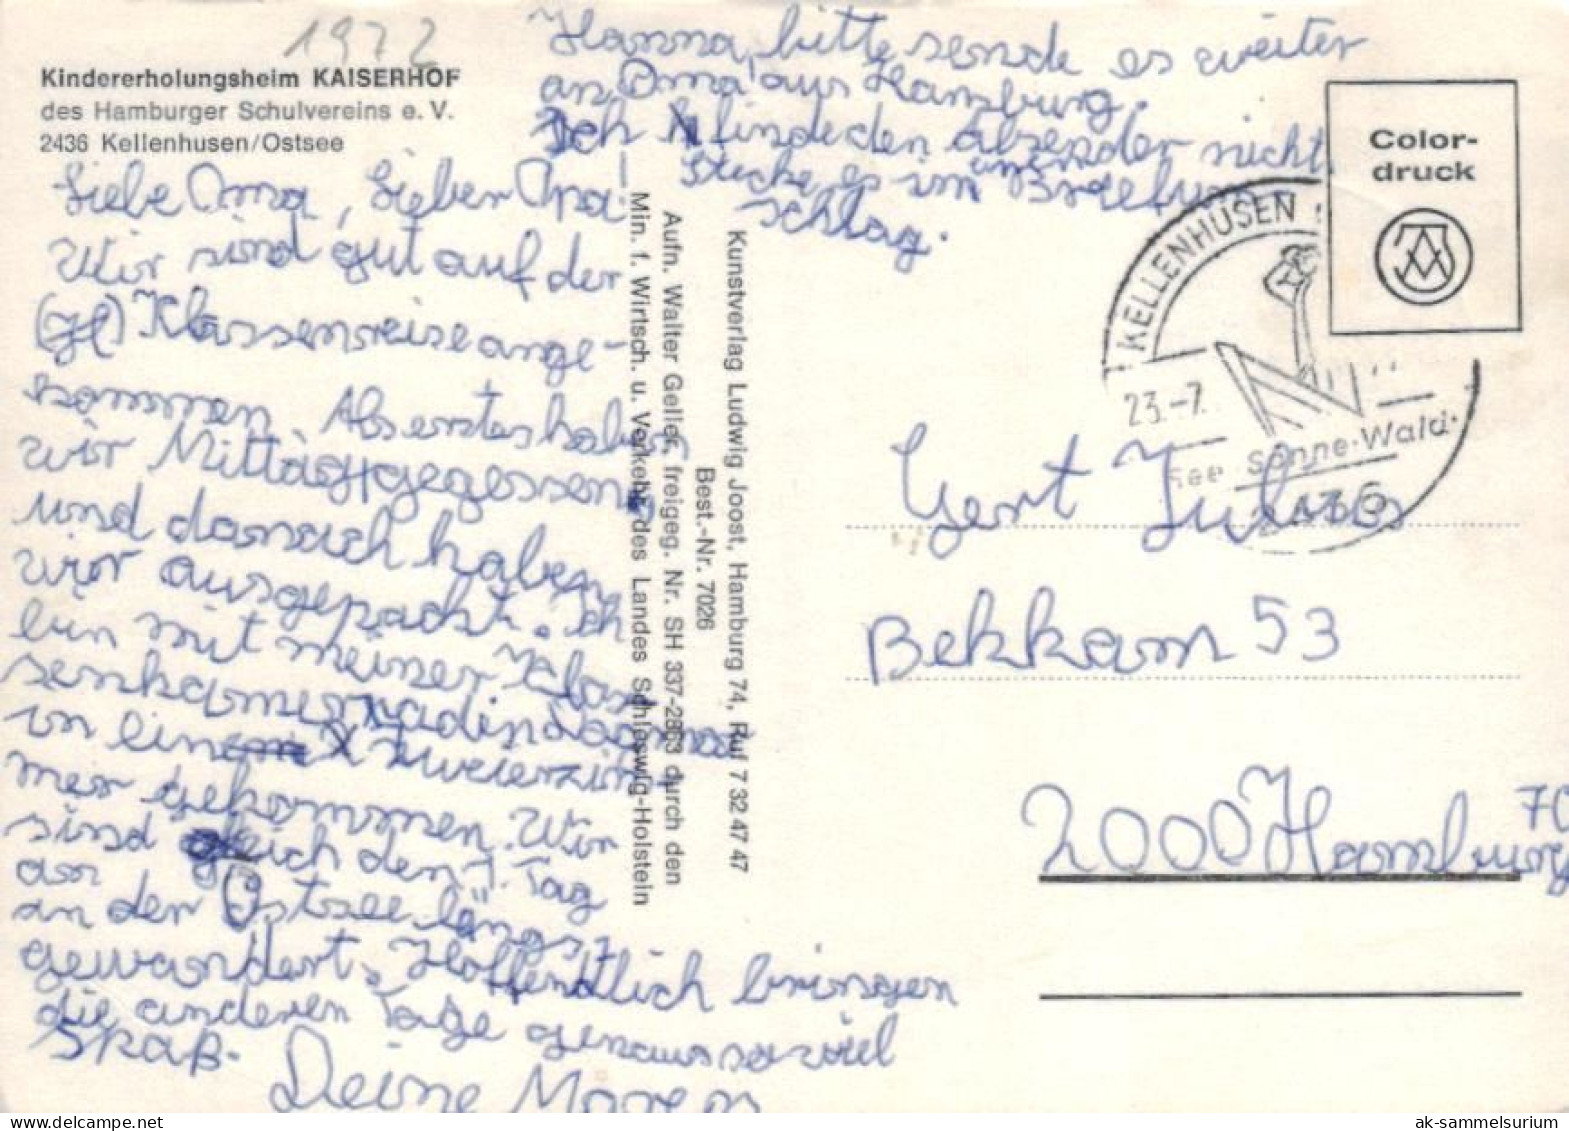 1972
Kindererholungsheim KAISERHOF
des Hamburger Schulvereins e. V.
2436 Kellenhusen/Ostsee
Hanna, bitte sende es weiter
an Oma aus Hamburg.
Ich finde den Absender nicht
Stecke es im
schlag.
Liebe Oma, Lieber Opa
Wir sind gut auf der
Klassenreise ange-
kommen. Als erstes haben
wir Mittag gegessen
und danach haben
wir ausgepackt. Ich
bin mit meiner Klas
senkameradin
in einem Zweierzim-
mer gekommen. Wir
sind gleich den 1. Tag
an
an der Ostsee längst
gewandert. Hoffendlich bringen
die anderen Tage genau so viel
Spaß.
Deine
Min. f. Wirtsch. u. Verkehr des Landes Schleswig-Holstein
Aufn. Walter Geller, freigeg. Nr. SH 337-2863 durch den
Best.-Nr. 7026
Kunstverlag Ludwig Joost, Hamburg 74, Ruf 7 32 47 47
Color-
druck
KELLENHUSEN
23.-7.
See · Sonne · Wald ·
2436
Gert Julius
Bekkam 53
2000 Hamburg 70
ak-sammelsurium